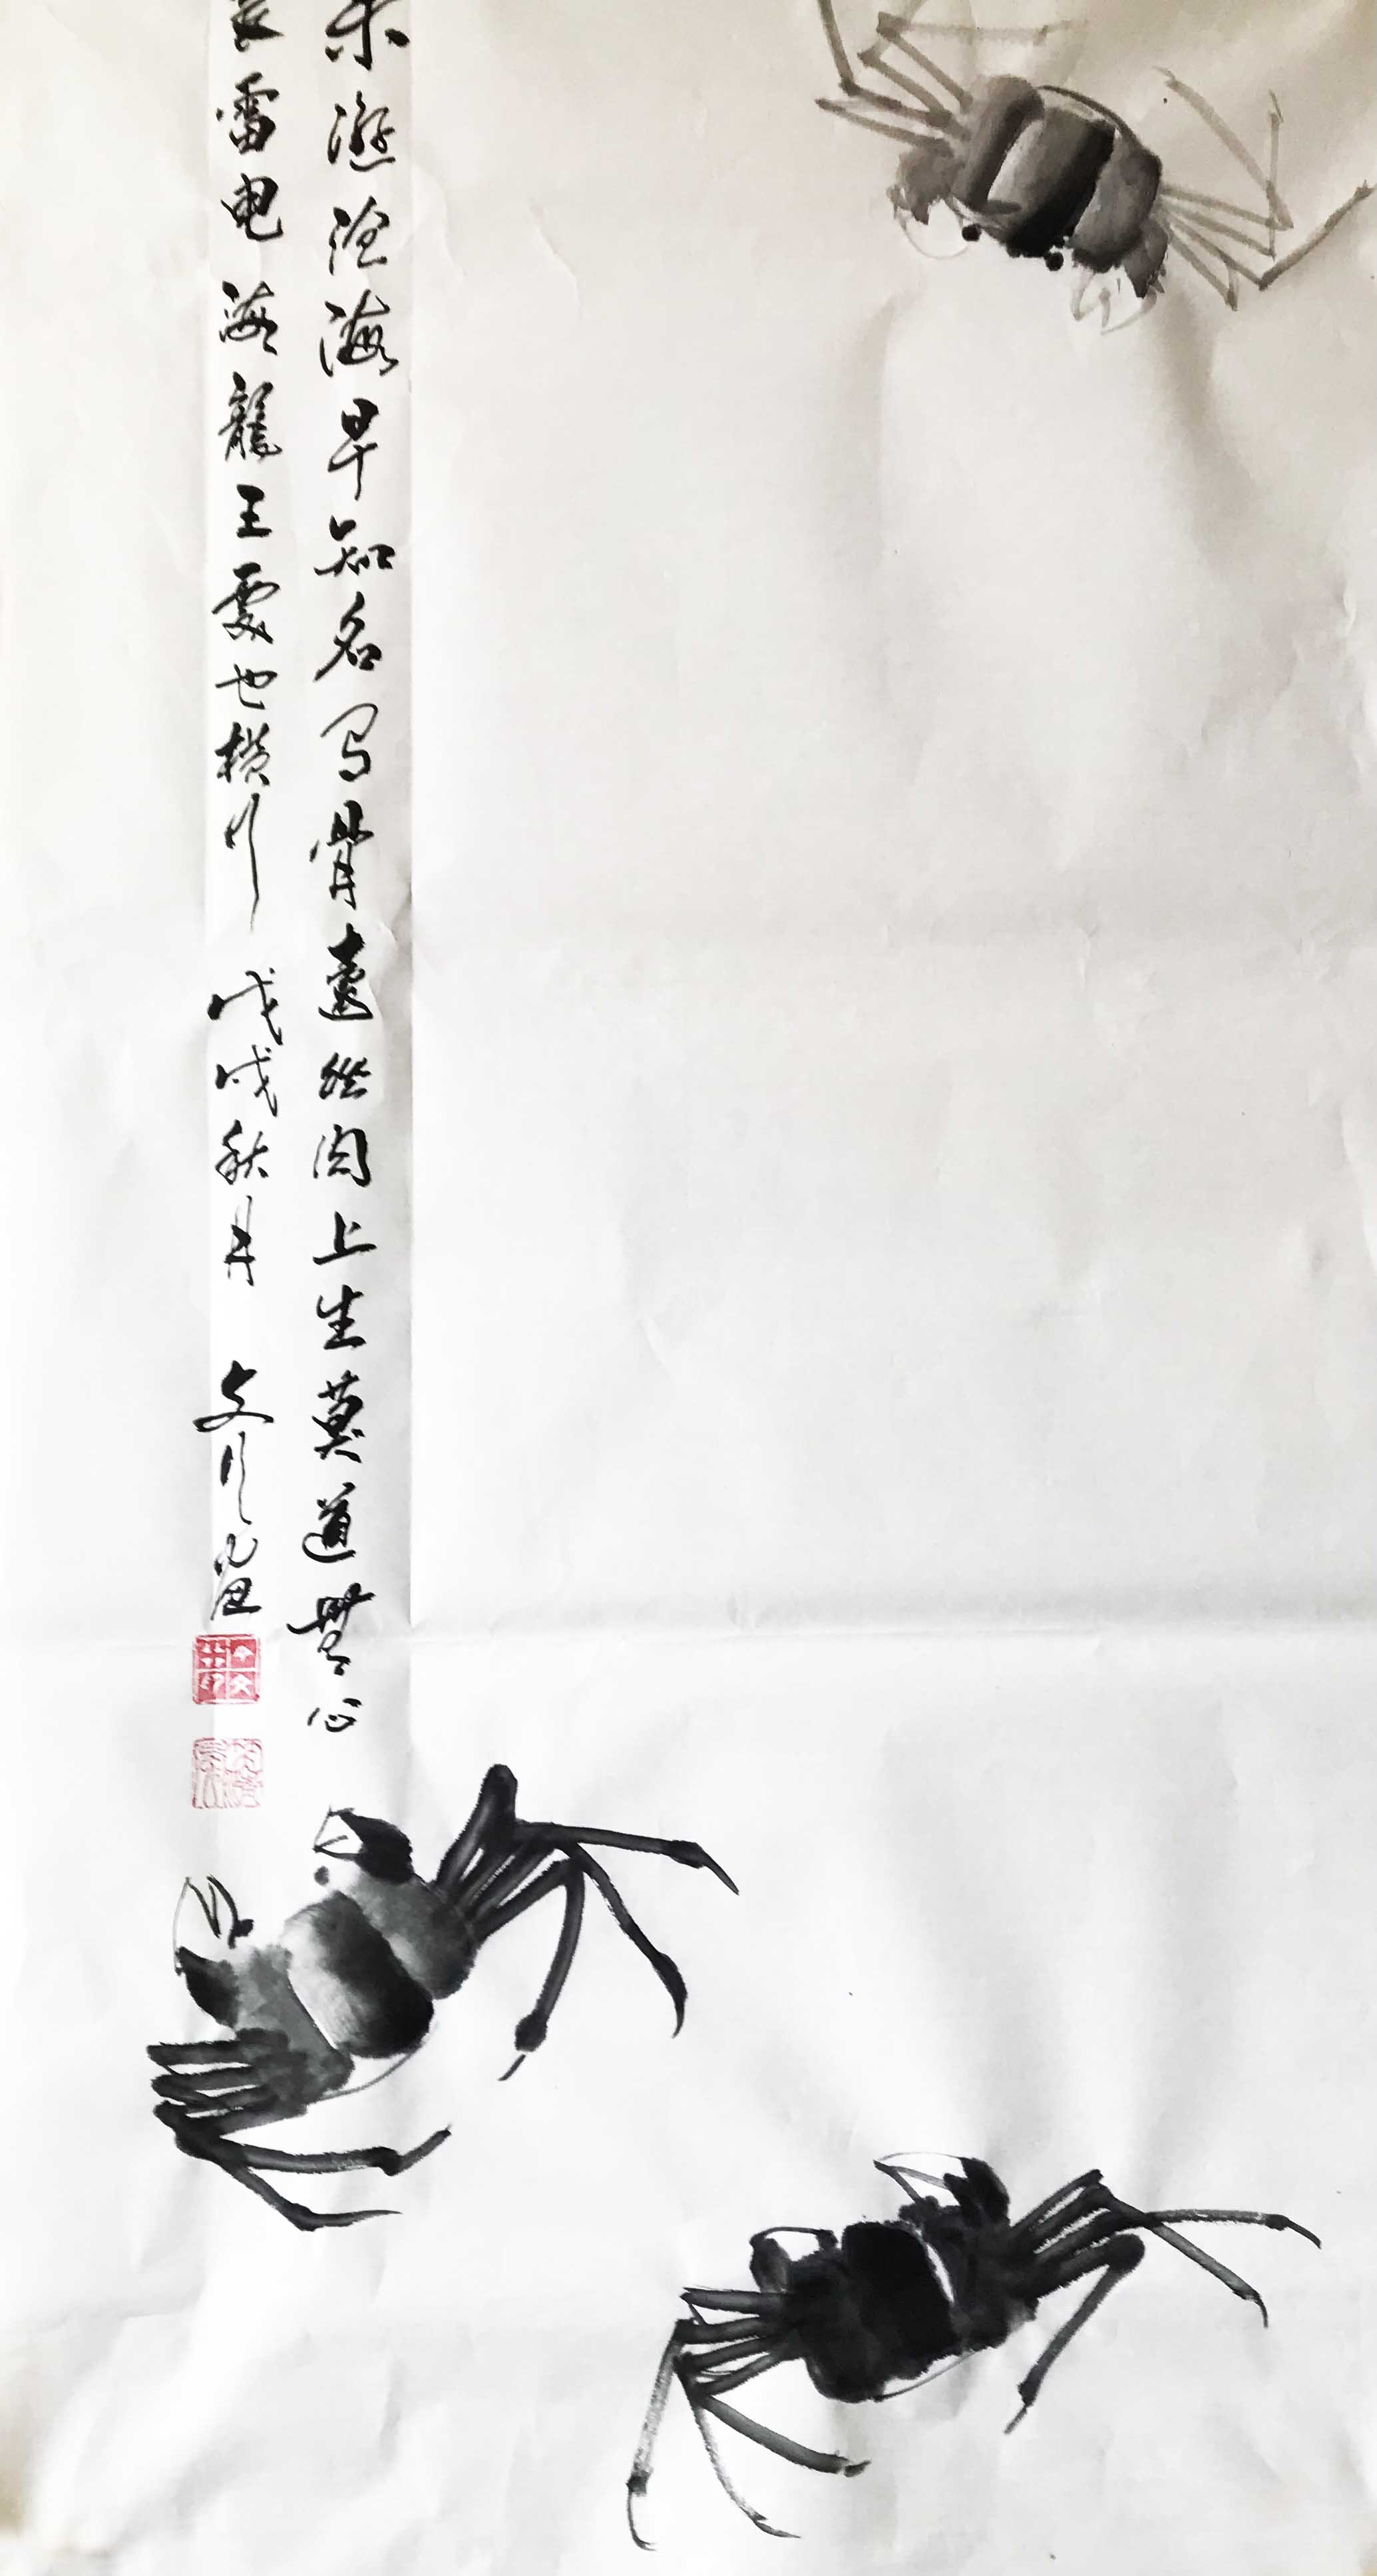 未游滄海早知名有骨還從肉上生莫道無心
畏雷电海龍王處也横行 戊戌秋月 文画